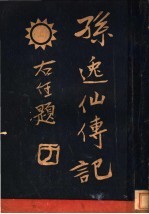 孫逸仙傳記
右任題